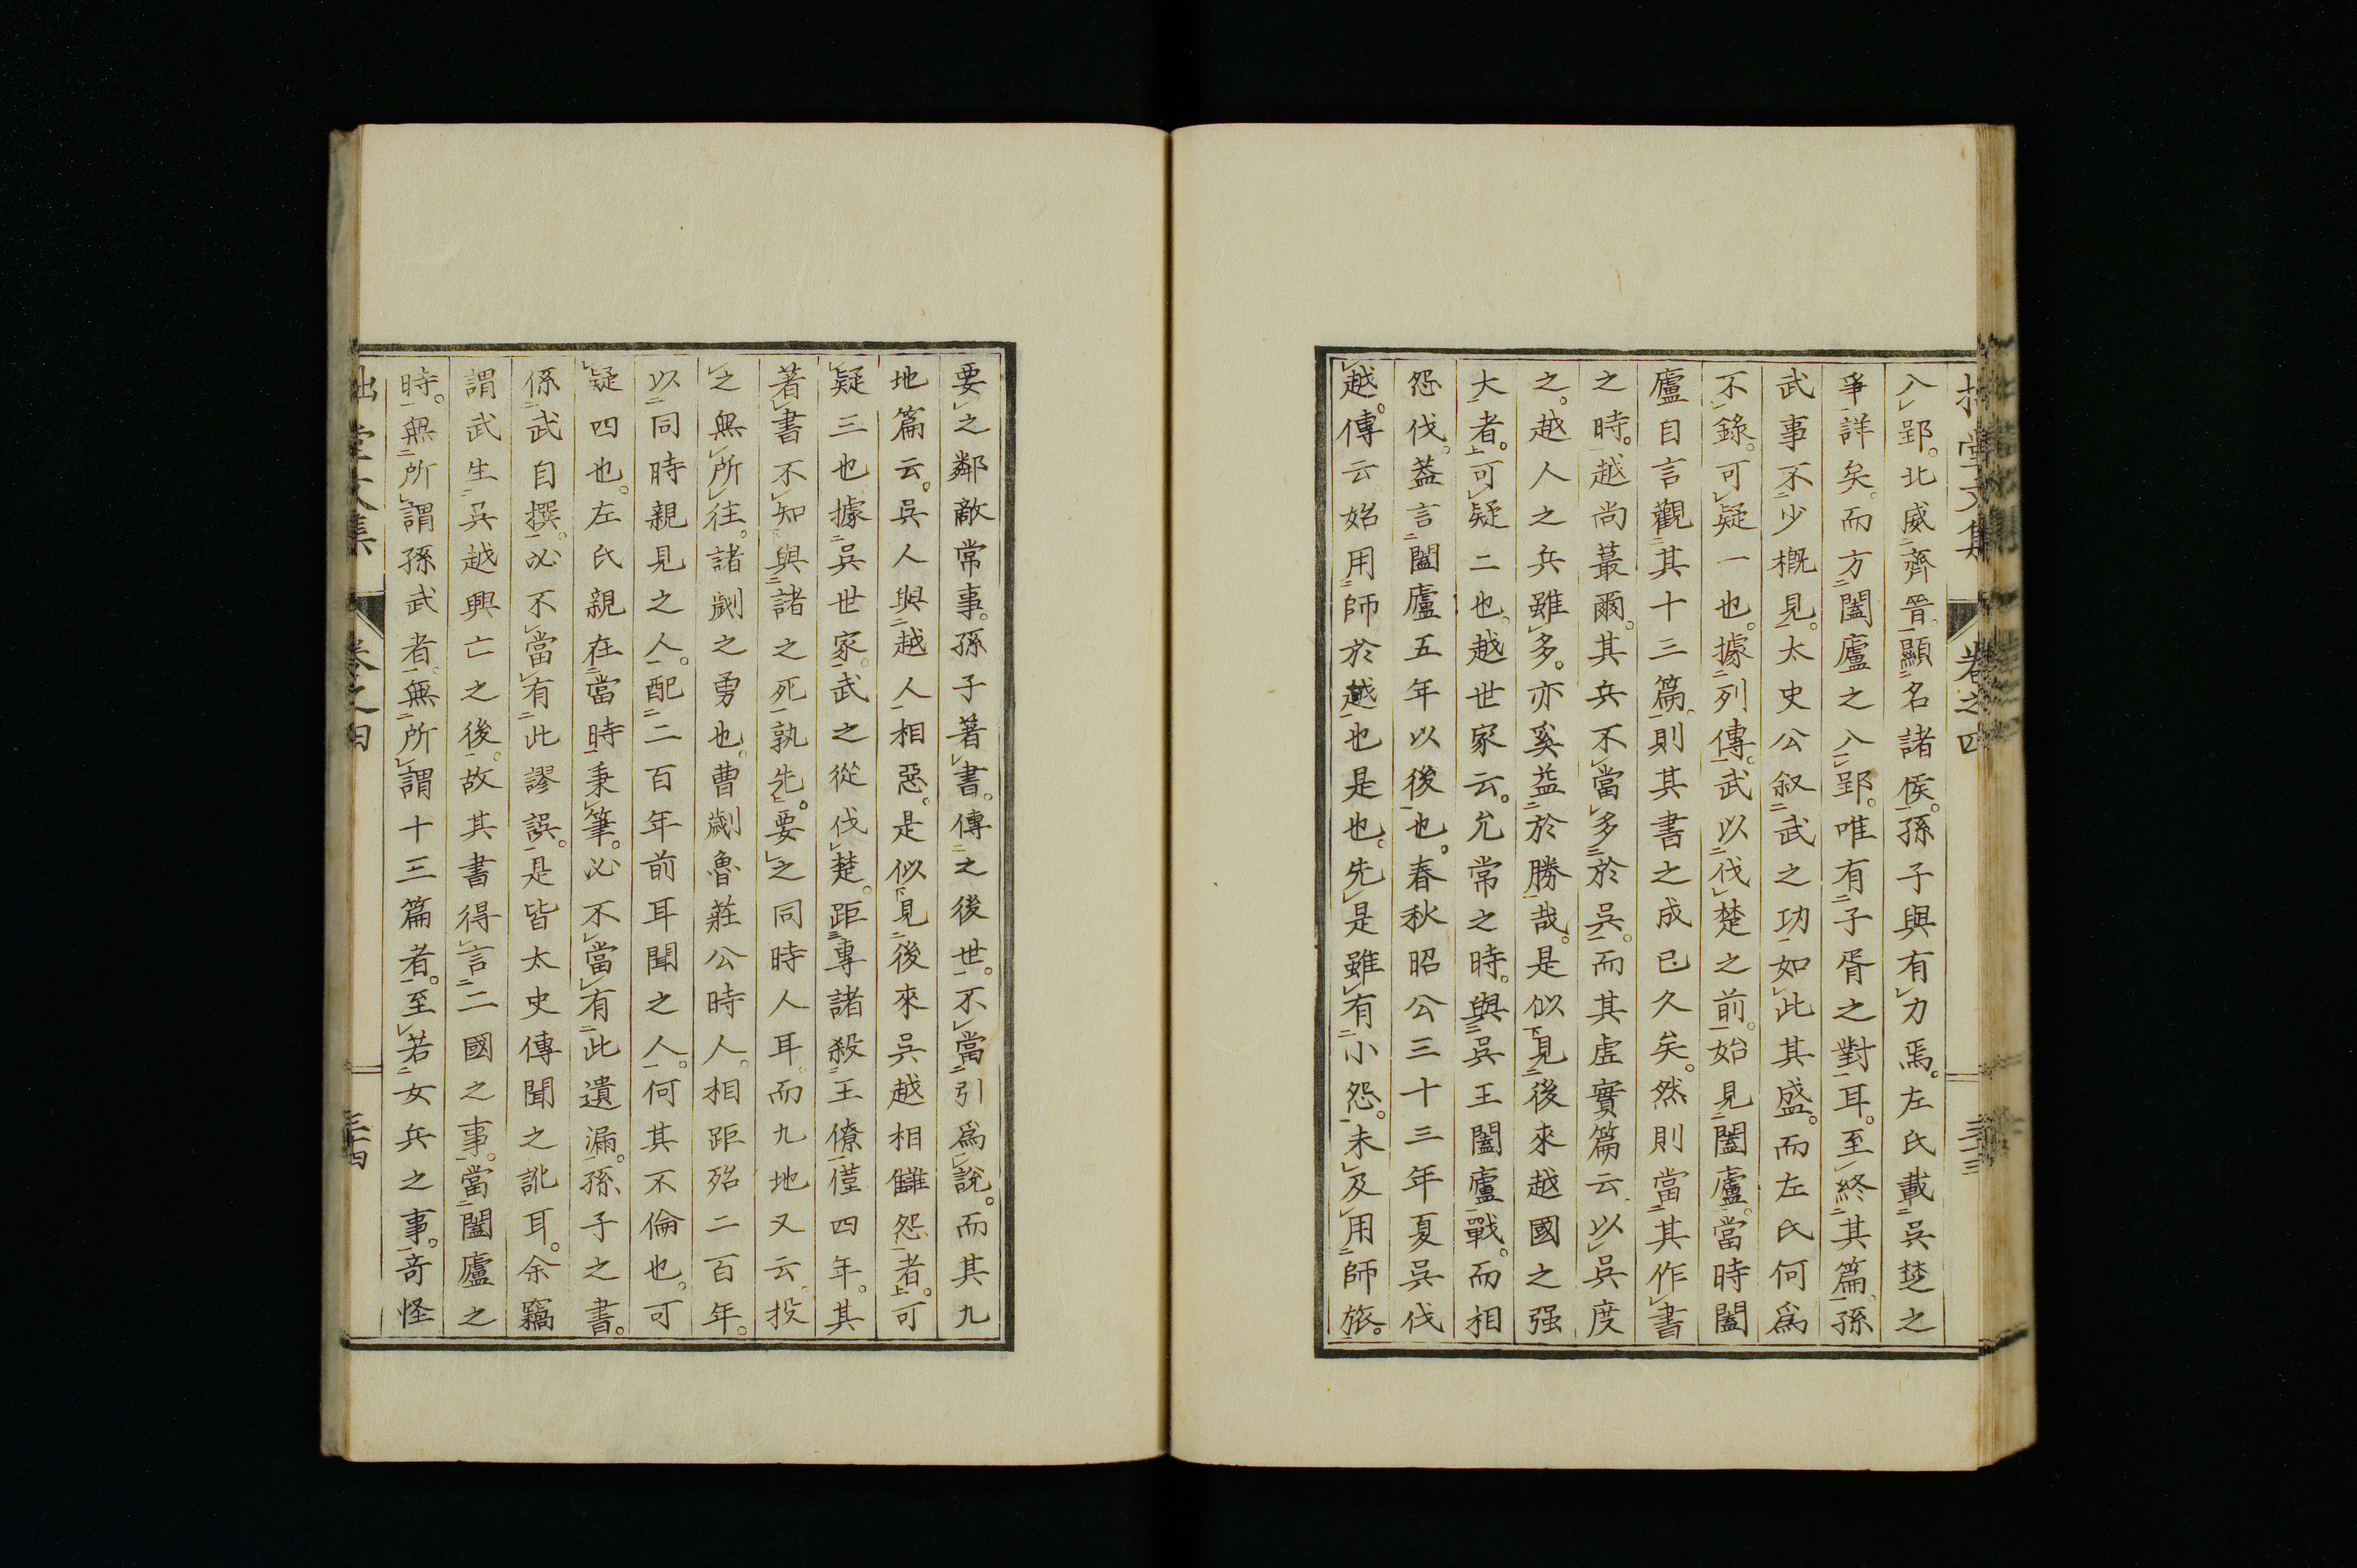 入郢。北威齊晉。顯名諸侯。孫子與有力焉。左氏載吳楚之
爭詳矣。而方闔廬之入郢。唯有子胥之對耳。至終其篇。孫
武事不少概見。太史公叙武之功如此其盛。而左氏何爲
不錄。可疑一也。據列傳。武以伐楚之前。始見闔廬。當時闔
廬自言觀其十三篇。則其書之成已久矣。然則當其作書
之時。越尚蕞爾。其兵不當多於吳。而其虛實篇云。以吳度
之。越人之兵雖多。亦奚益於勝哉。是似見後來越國之强
大者。可疑二也。越世家云。允常之時。與吳王闔廬戰。而相
怨伐。蓋言闔廬五年以後也。春秋昭公三十三年夏吳伐
越。傳云始用師於越也是也。先是雖有小怨。未及用師旅。
要之鄰敵常事。孫子著書。傳之後世。不當引爲說。而其九
地篇云。吳人與越人相惡。是似見後來吳越相讎怨者。可
疑三也。據吳世家。武之從伐楚。距專諸殺王僚僅四年。其
著書不知與諸之死孰先。要之同時人耳。而九地又云。投
之無所往。諸劌之勇也。曹劌魯莊公時人。相距殆二百年。
以同時親見之人。配二百年前耳聞之人。何其不倫也。可
疑四也。左氏親在當時秉筆。必不當有此遺漏。孫子之書。
係武自撰。必不當有此謬誤。是皆太史傳聞之訛耳。余竊
謂武生吳越興亡之後。故其書得言二國之事。當闔廬之
時。無所謂孫武者。無所謂十三篇者。至若女兵之事。奇怪
堂文集 卷之四 三十四